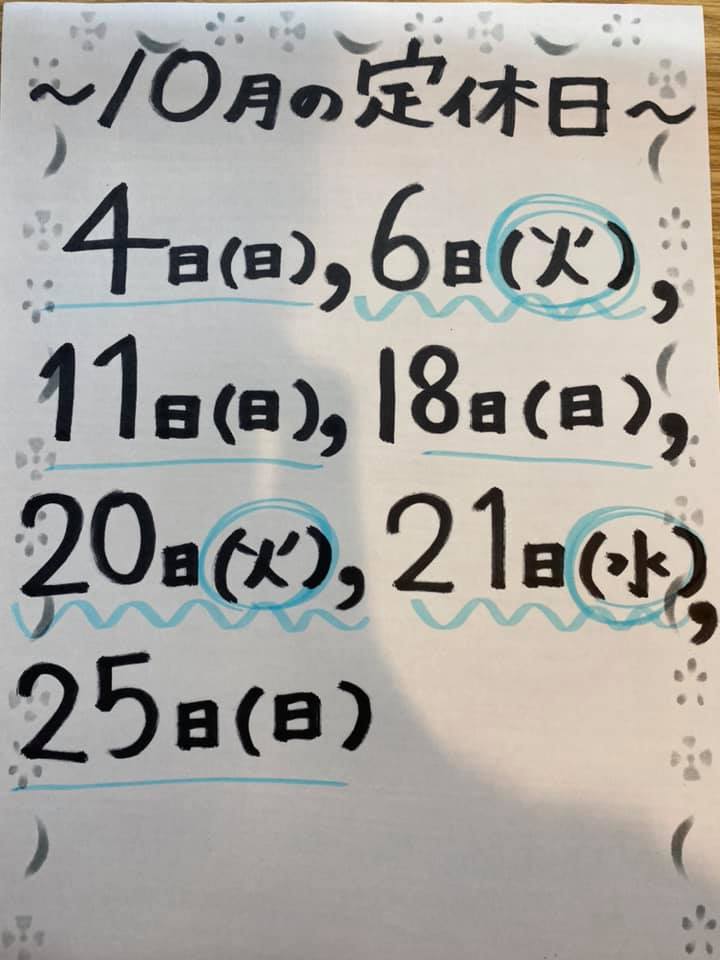 ～10月の定休日～
4日(日),6日(火),
11日(日),18日(日),
20日(火),21日(水),
25日(日)